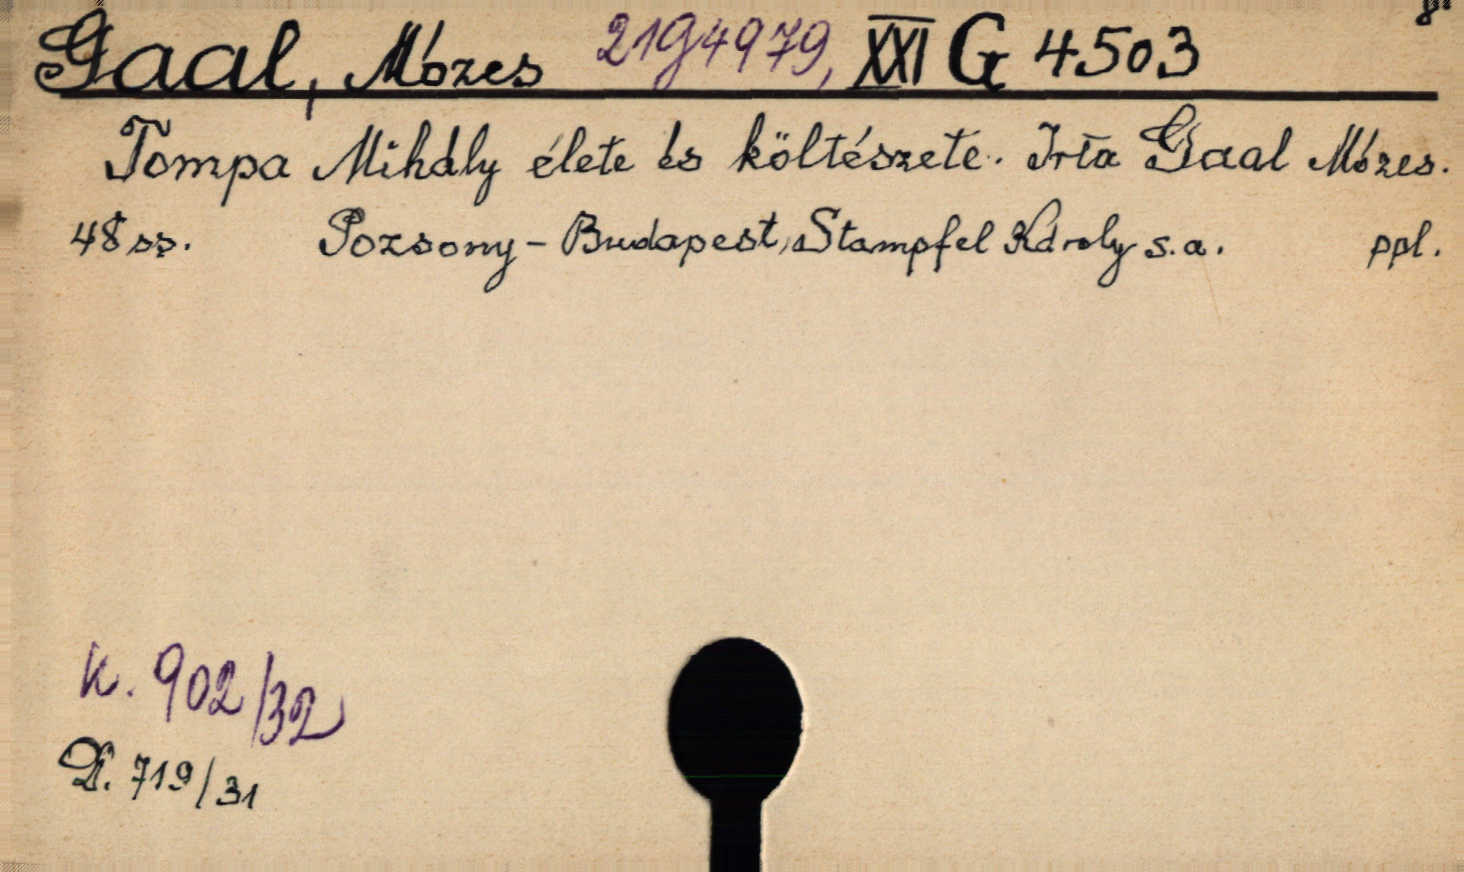 Gaal, Mózes 21g4979, XXI G 4503 8°
Tompa Mihály élete és költészete. Irta Gaal Mózes.
48 ss. Pozsony-Budapest, Stampfel Károly s.a. ppl.
K. 902/32
D. 719/31